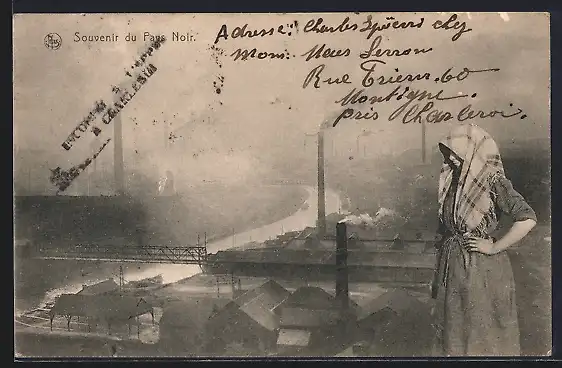 Souvenir du Pays Noir.
Adresse: Charles Spûerri chez
Mons: Maes Serron
Rue Trieu. 60
Montigne
près Charleroi.
INCONNU
à CHARLEROI